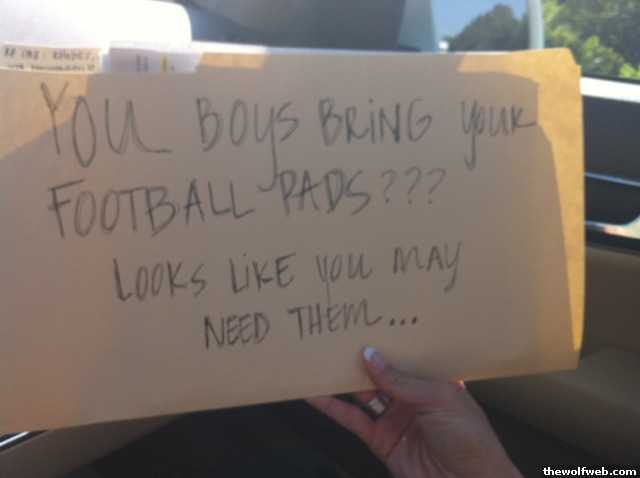 YOU BOYS BRING YOUR
FOOTBALL PADS???
LOOKS LIKE YOU MAY
NEED THEM...
thewolfweb.com